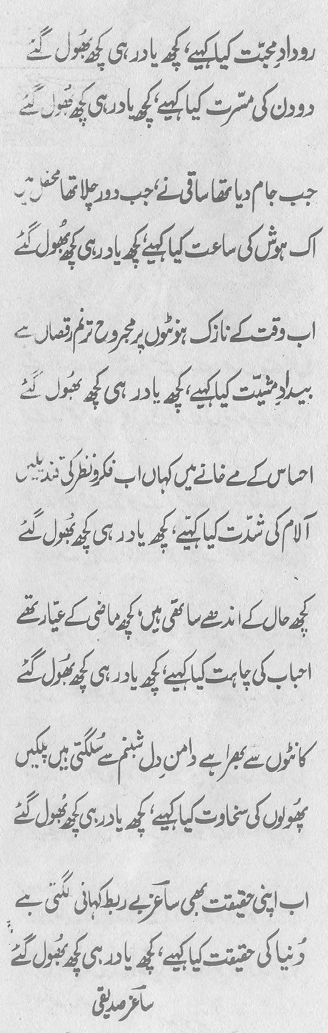 رودادِ محبّت کیا کہیے، کچھ یاد رہی کچھ بھُول گئے
دو دن کی مسّرت کیا کہیے، کچھ یاد رہی کچھ بھُول گئے
جب جام دیا تھا ساقی نے، جب دور چلا تھا محفل میں
اک ہوش کی ساعت کیا کہیے، کچھ یاد رہی کچھ بھُول گئے
اب وقت کے نازک ہونٹوں پر مجروح ترنّم رقصاں ہے
بیدادِ مشیّت کیا کہیے، کچھ یاد رہی کچھ بھُول گئے
احساس کے مے خانے میں کہاں اب فکر و نظر کی قندیلیں
آلام کی شدّت کیا کہیے، کچھ یاد رہی کچھ بھُول گئے
کچھ حال کے اندھے ساتھی ہیں، کچھ ماضی کے عیّار تھے
احباب کی چاہت کیا کہیے، کچھ یاد رہی کچھ بھُول گئے
کانٹوں سے بھرا ہے دامنِ دِل شبنم سے سُلگتی ہیں پلکیں
پھُولوں کی سخاوت کیا کہیے، کچھ یاد رہی کچھ بھُول گئے
اب اپنی حقیقت بھی ساغر بے ربط کہانی لگتی ہے
دُنیا کی حقیقت کیا کہیے، کچھ یاد رہی کچھ بھُول گئے
ساغر صدیقی